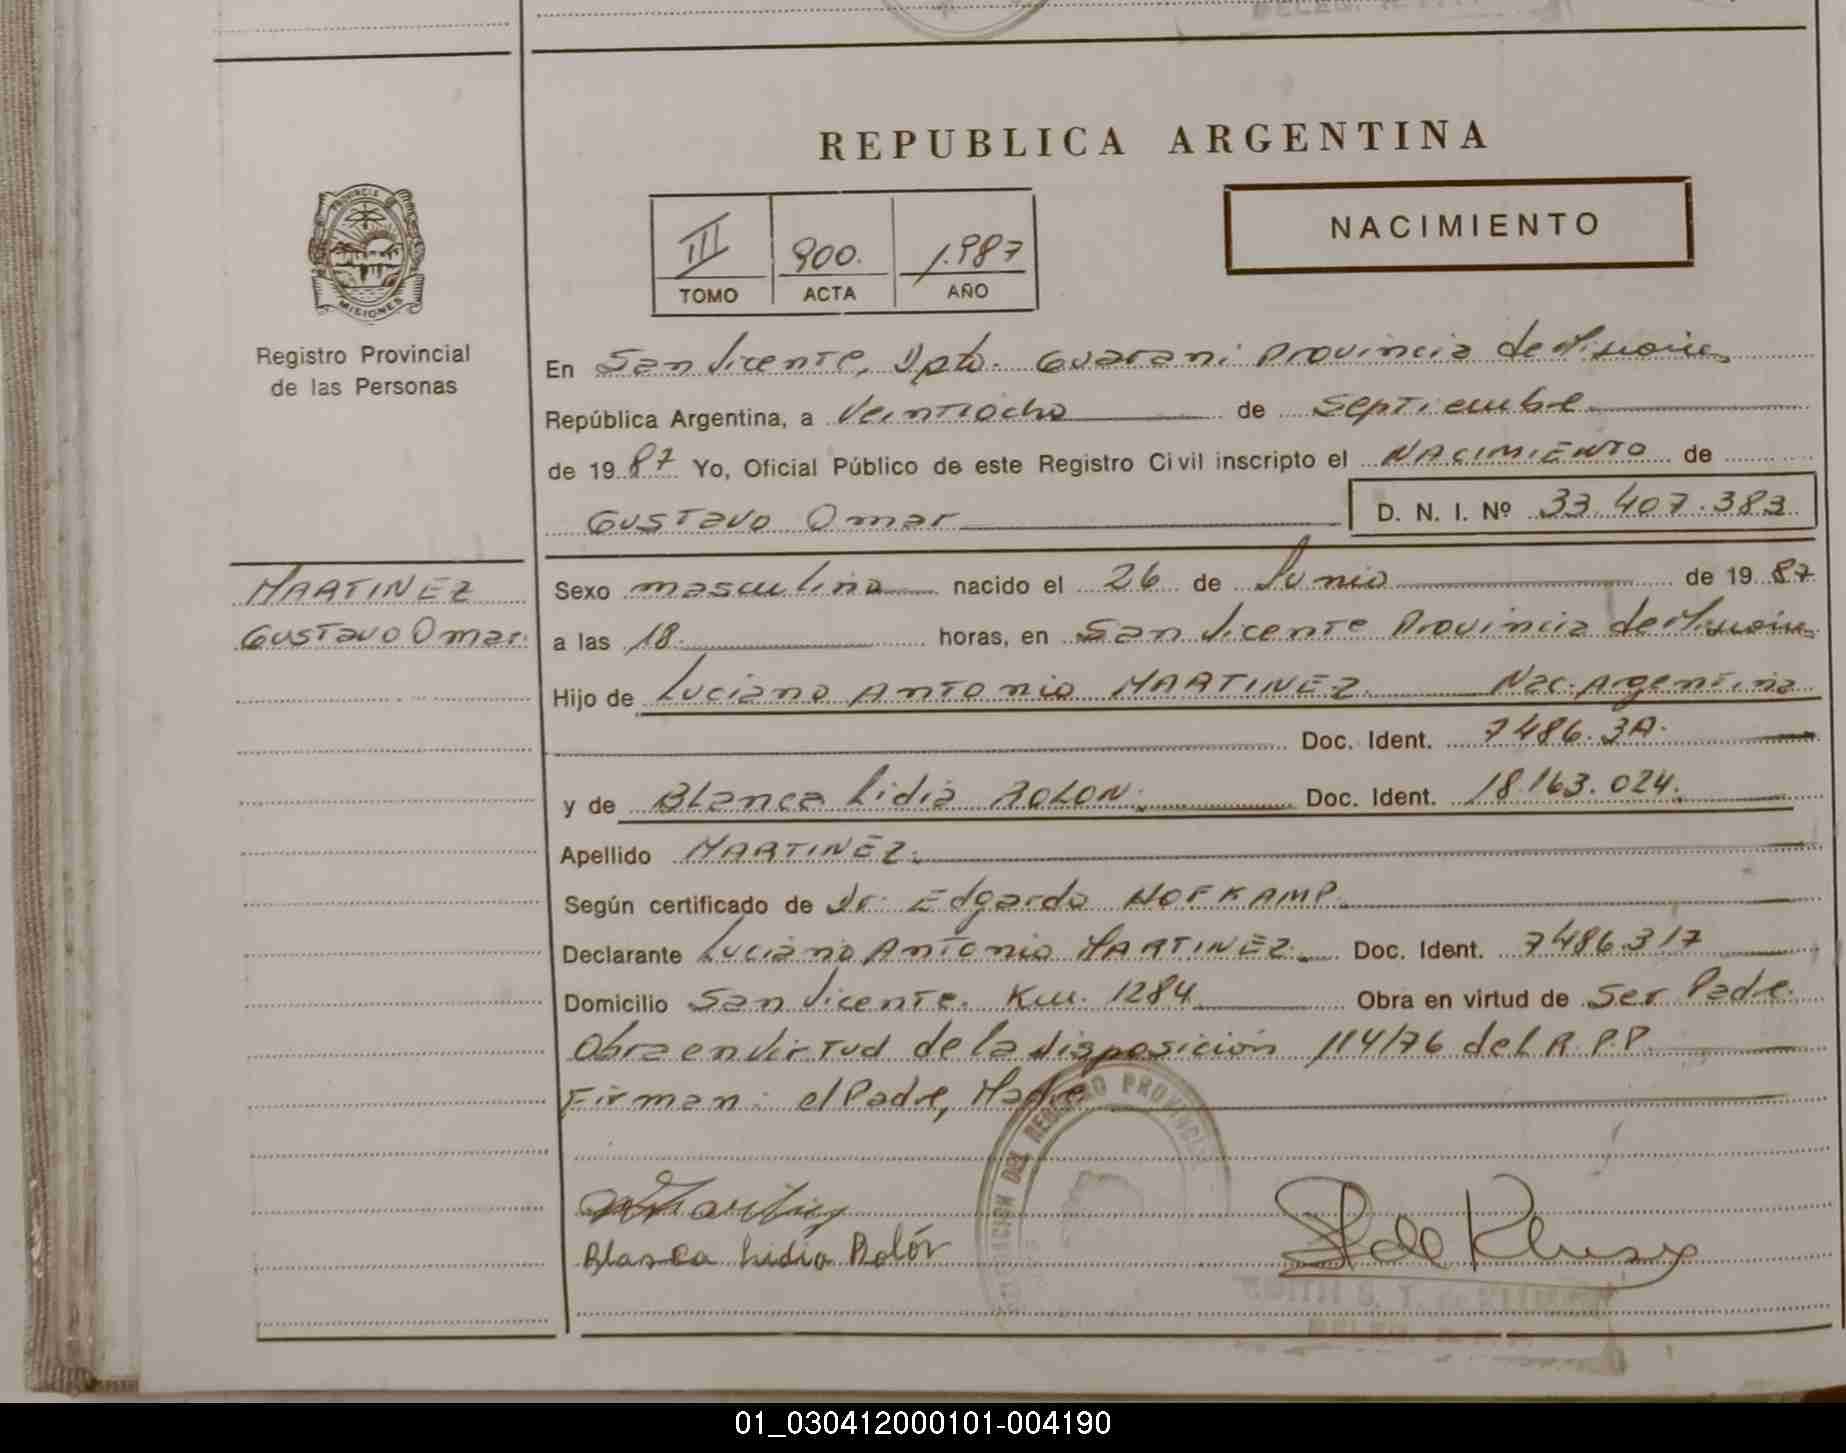 REPUBLICA ARGENTINA
NACIMIENTO
III 900. 1.987
TOMO ACTA AÑO
PROVINCIA DE
MISIONES
Registro Provincial
de las Personas
En San Vicente, Dpto. Guarani Provincia de Misiones
República Argentina, a Veintiocho de Septiembre
de 1987 Yo, Oficial Público de este Registro Civil inscripto el NACIMIENTO de
Gustavo Omar D. N. I. Nº 33.407.383
MARTINEZ
Gustavo Omar.
Sexo masculino nacido el 26 de Junio de 1987
a las 18. horas, en San Vicente Provincia de Misiones
Hijo de Luciano Antonio MARTINEZ Nac. Argentina
Doc. Ident. 7486.3
y de Blanca Lidia ROLON. Doc. Ident. 18.163.024.
Apellido MARTINEZ.
Según certificado de Dr. Edgardo HOFKAMP.
Declarante Luciano Antonio MARTINEZ. Doc. Ident. 7486.317
Domicilio San Vicente. Km. 1284 Obra en virtud de Ser Padre.
Obra en virtud de la disposición 114/76 del R.P.P.
Firman: el Padre, Madre
DEL REGISTRO PROVINCIAL
Blanca Lidia Rolón
01_030412000101-004190